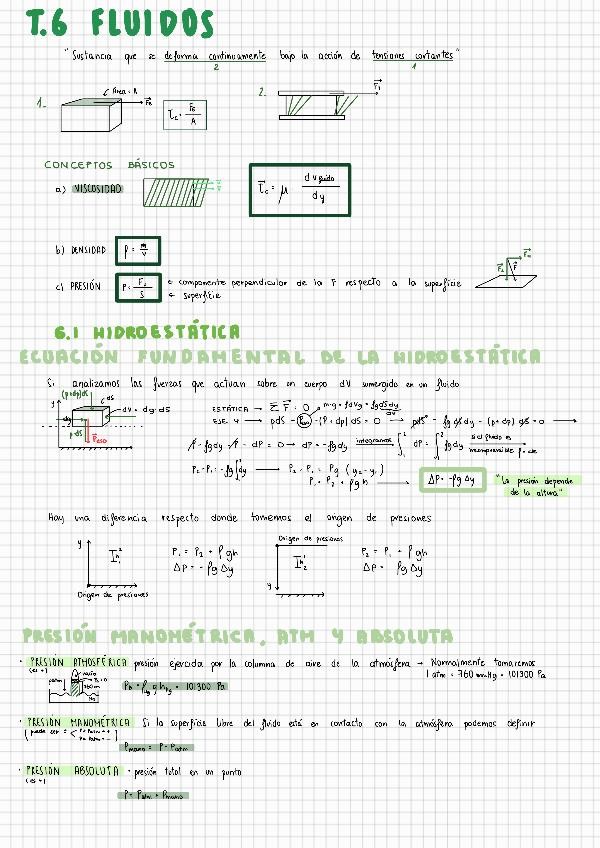 T.6 FLUIDOS
"Sustancia que se deforma continuamente bajo la acción de tensiones cortantes"
2 1
1. Área = A F₀ τc = F₀/A
2. F₁
CONCEPTOS BÁSICOS
a) VISCOSIDAD τc = μ dv fluido / dy
b) DENSIDAD ρ = m/V
c) PRESIÓN P = F⊥/S ← componente perpendicular de la F respecto a la superficie
← superficie
6.1 HIDROESTÁTICA
ECUACIÓN FUNDAMENTAL DE LA HIDROESTÁTICA
Si analizamos las fuerzas que actuan sobre un cuerpo dV sumergido en un fluido
(p+dp)dS dS
y dy dV = dy · dS
p dS Peso
ESTÁTICA → Σ F = 0 m·g = ρdVg = ρgdSdy
EJE Y → pdS - Peso - (P+dp) dS = 0 → pdS - ρg dy dS - (p+dp) dS = 0 →
P - ρgdy - P - dP = 0 → dP = -ρgdy integramos ∫₁² dP = ∫₁² -ρgdy si el fluido es incompresible ρ = cte
P₂ - P₁ = -ρg∫₁²dy → P₂ - P₁ = ρg (y₂ - y₁)
P₁ = P₂ + ρg h → ΔP = -ρg Δy "La presión depende
de la altura"
Hay una diferencia respecto donde tomemos el origen de presiones
Origen de presiones
y P₁ = P₂ + ρgh P₂ = P₁ + ρgh
ΔP = -ρgΔy ΔP = ρgΔy
Origen de presiones y
PRESIÓN MANOMÉTRICA, ATM Y ABSOLUTA
· PRESIÓN ATMOSFÉRICA presión ejercida por la columna de aire de la atmósfera → Normalmente tomaremos
(es +) 1 atm = 760 mmHg = 101300 Pa
vacío P = 0
patm 760mm Hg
P₀ = ρHg g hHg = 101300 Pa
· PRESIÓN MANOMÉTRICA Si la superficie libre del fluido está en contacto con la atmósfera podemos definir
(puede ser: P > Patm = + P < Patm = -)
Pmano = P - Patm
· PRESIÓN ABSOLUTA · presión total en un punto
(es +)
P = Patm + Pmano